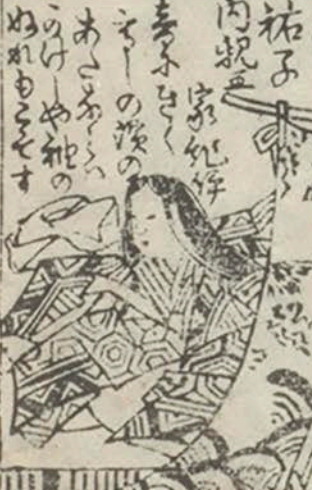 祐子
内親王
家紀伊
音にきく
高しの濱の
あだなみハ
かけじや袖の
ぬれもこそす